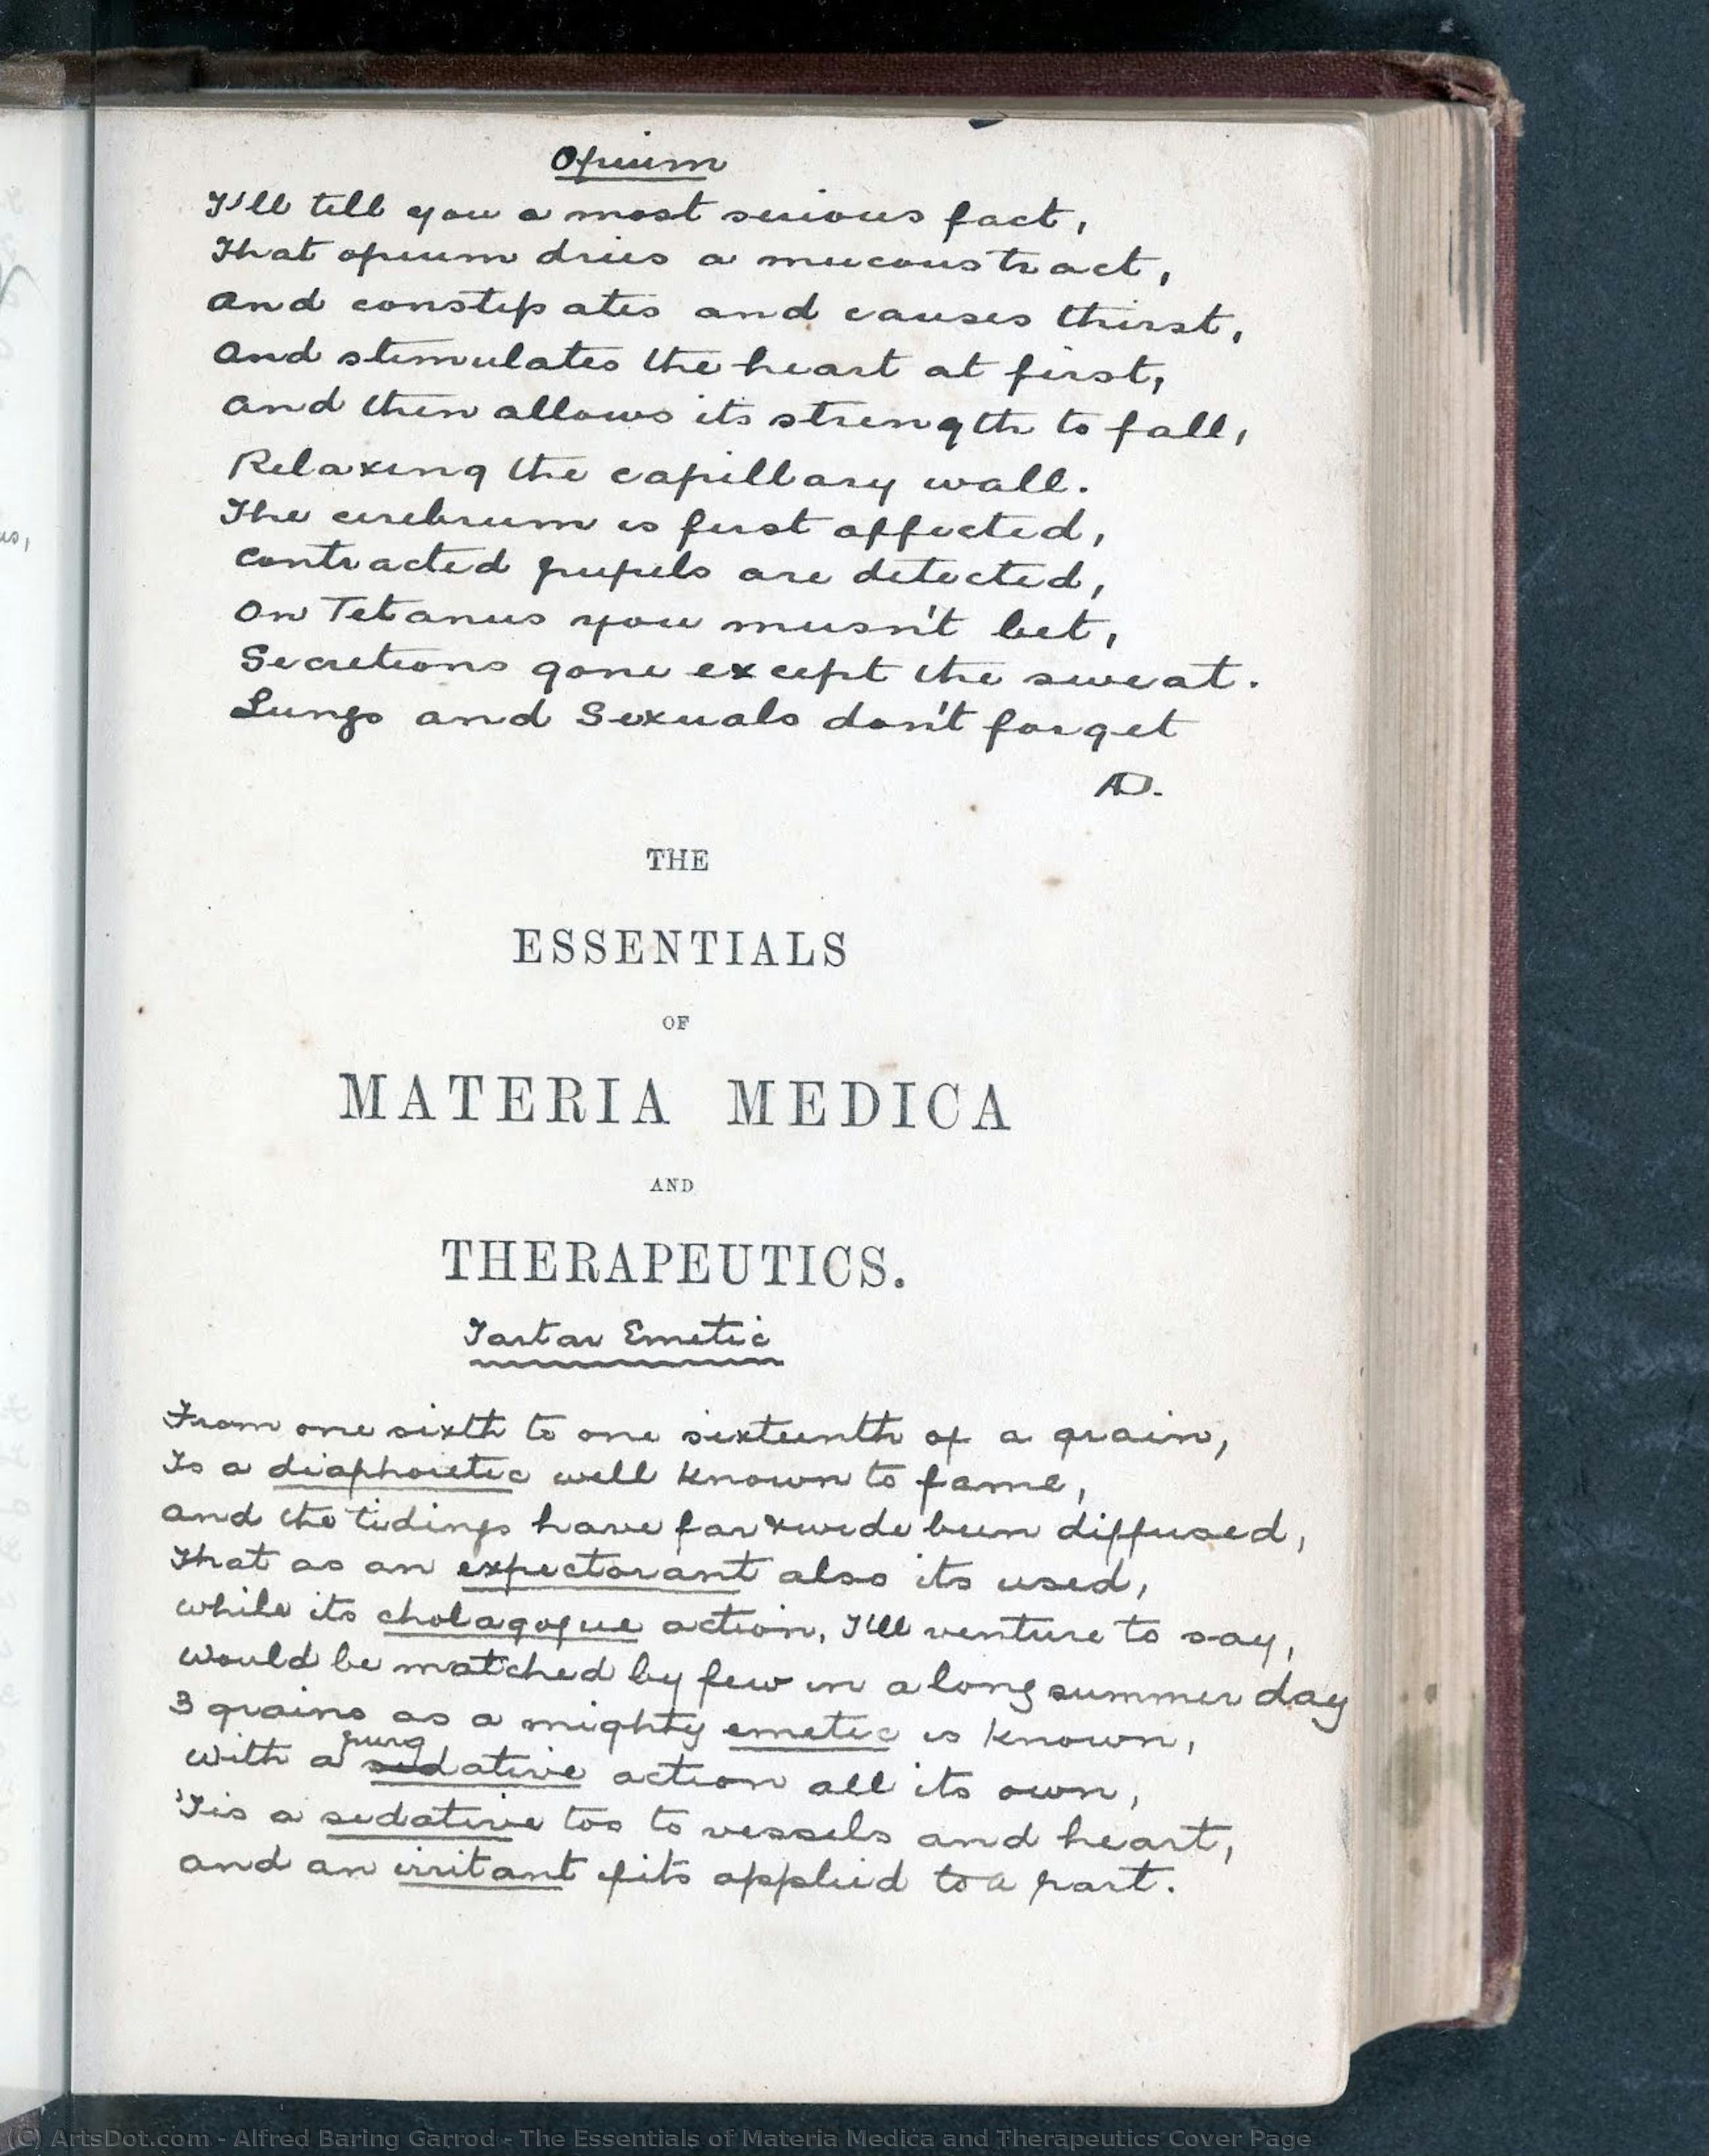 Opium
I'll tell you a most serious fact,
That opium dries a mucous tract,
and constipates and causes thirst,
and stimulates the heart at first,
and then allows its strength to fall,
Relaxing the capillary wall.
The cerebrum is first affected,
contracted pupils are detected,
On Tetanus you musn't bet,
Secretions gone except the sweat.
Lungs and Sexuals don't forget
AD.
THE
ESSENTIALS
OF
MATERIA MEDICA
AND
THERAPEUTICS.
Tartar Emetic
From one sixth to one sixteenth of a grain,
Is a diaphoretic well known to fame,
and the tidings have far & wide been diffused,
That as an expectorant also its used,
while its cholagogue action, I'll venture to say,
would be matched by few in a long summer day
3 grains as a mighty emetic is known,
purg
with a sedative action all its own,
'Tis a sedative too to vessels and heart,
and an irritant if its applied to a part.
(C) ArtsDot.com - Alfred Baring Garrod - The Essentials of Materia Medica and Therapeutics Cover Page